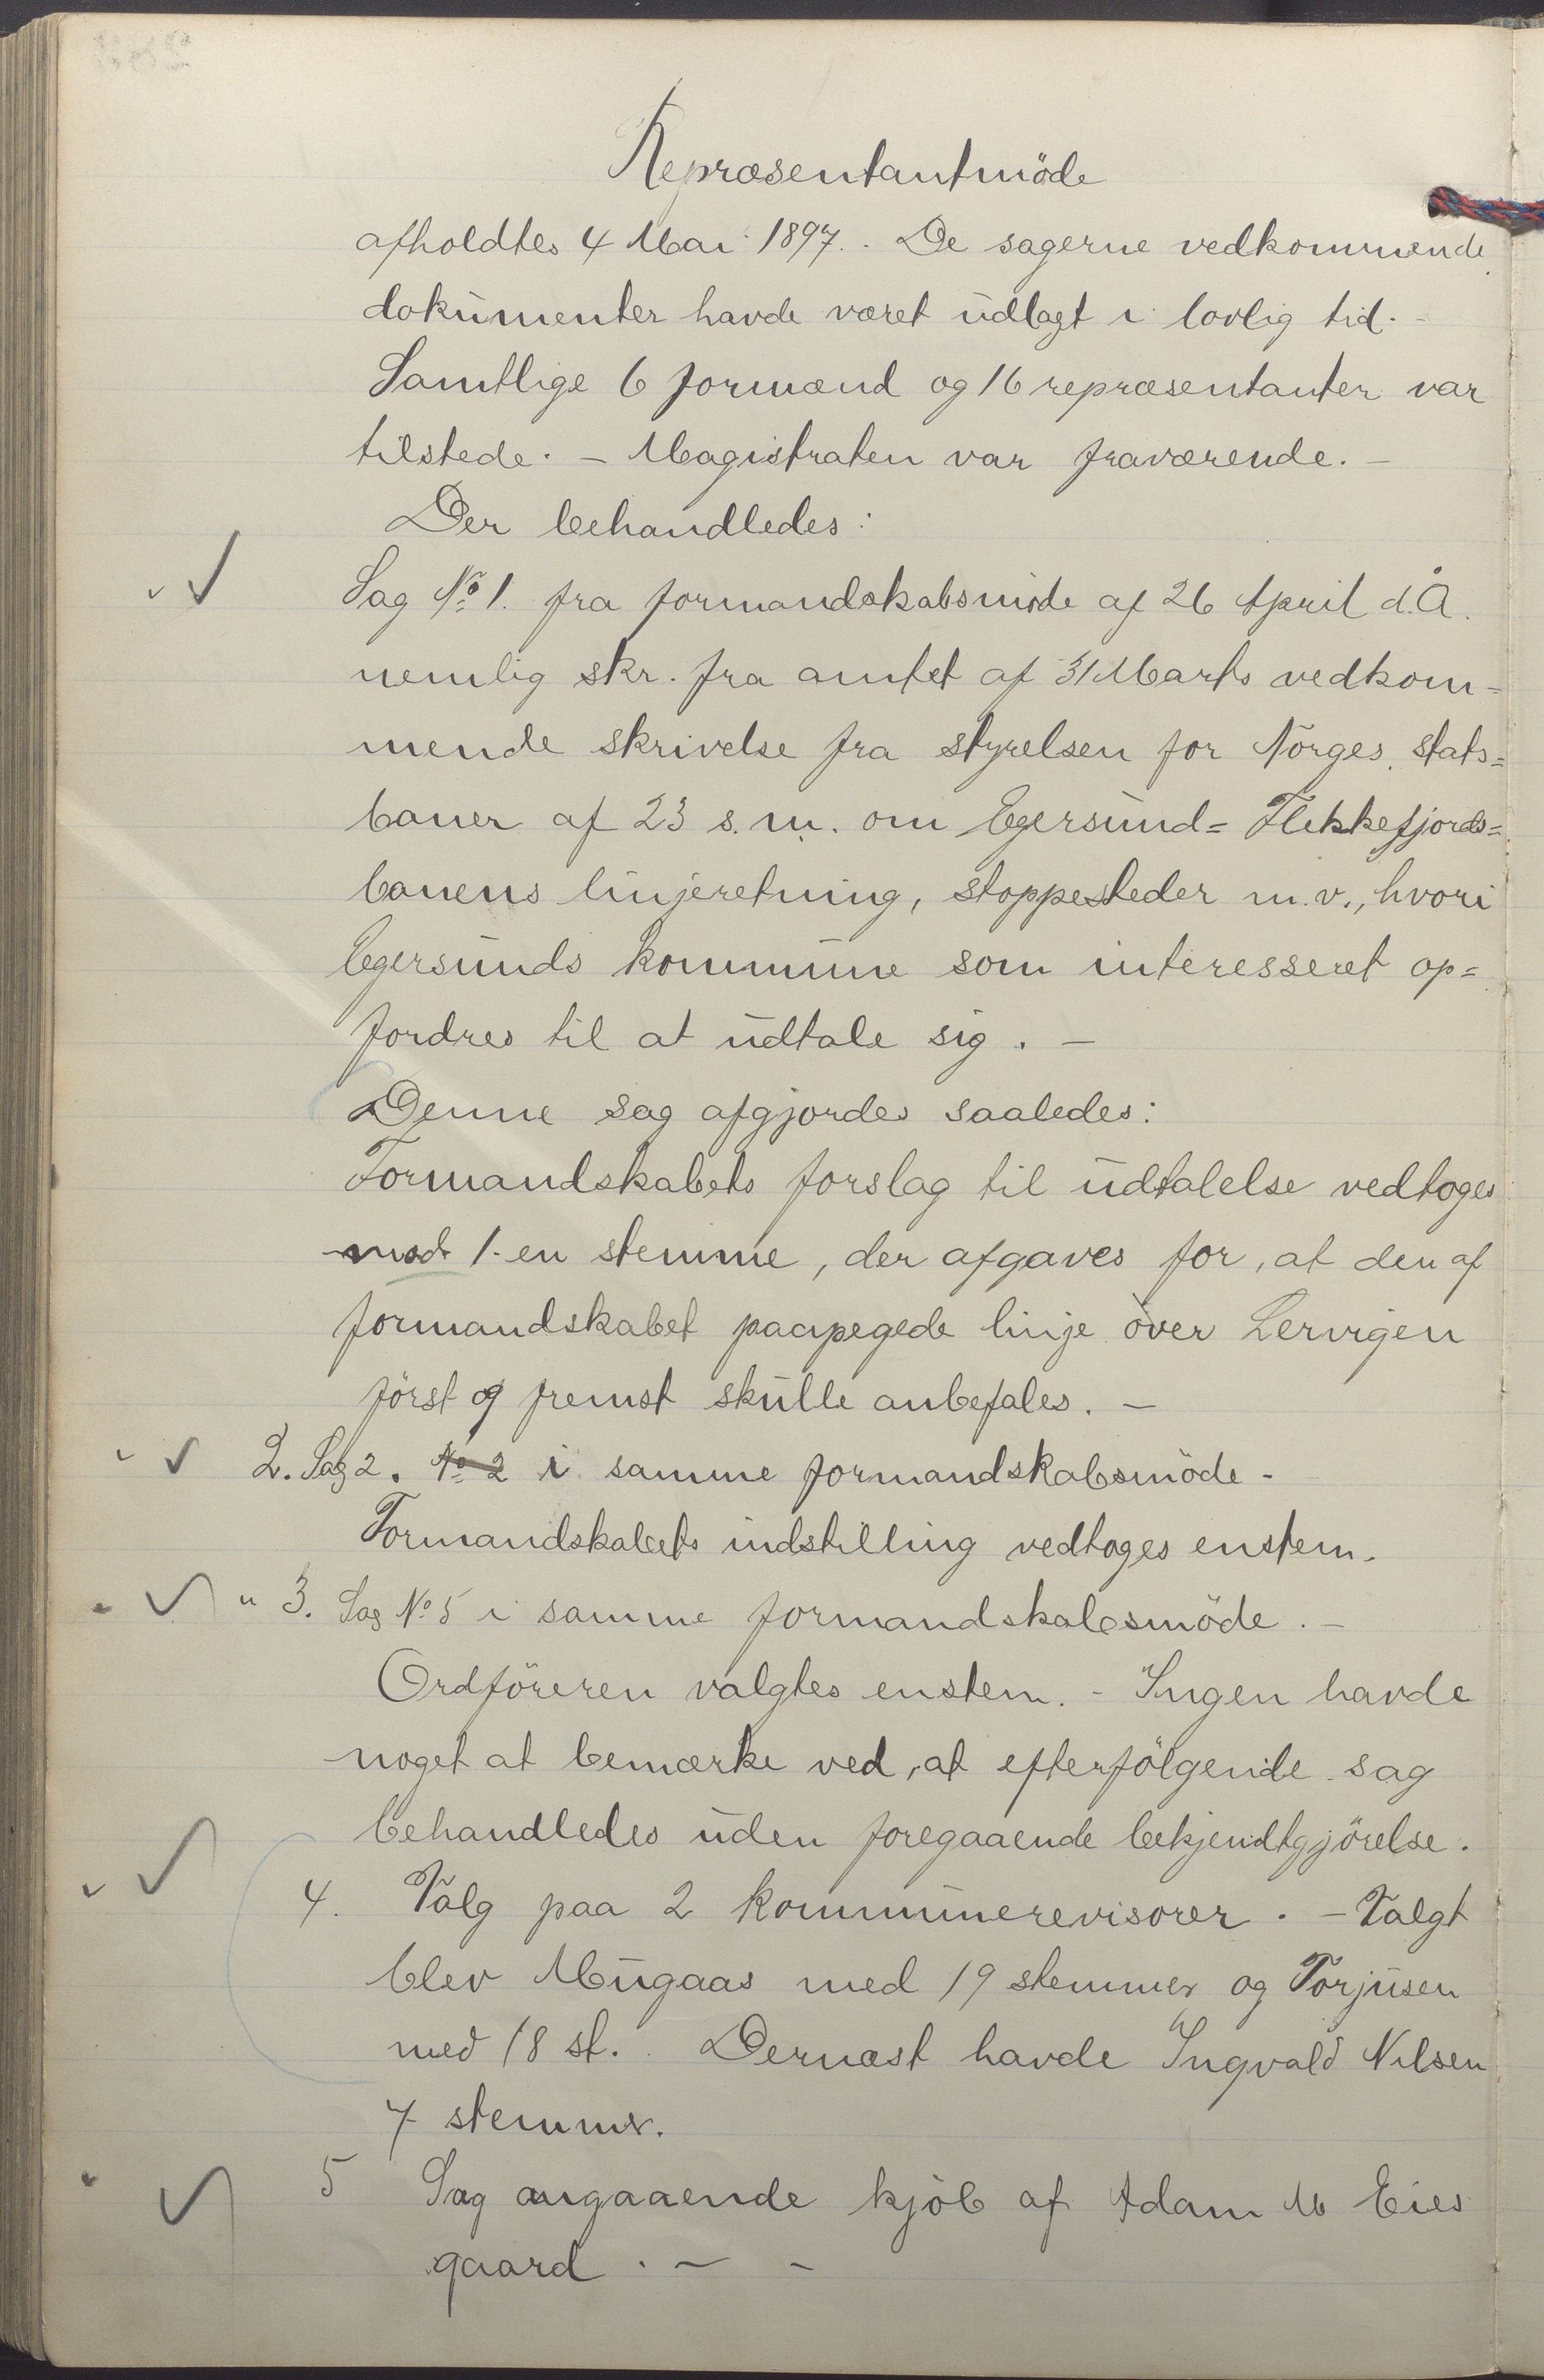 Repræsentantmöde
afholdtes 4 Mai 1897. De sagerne vedkommende
dokumenter havde været udlagt i lovlig tid. –
Samtlige 6 formænd og 16 repræsentanter var
tilstede. – Magistraten var fraværende. –
Der behandledes:
Sag No 1. fra formandskabsmöde af 26 April d.Å.
nemlig skr. fra amtet af 31 Marts vedkom=
mende skrivelse fra styrelsen for Norges stats=
baner af 23 s.m. om Egersund= Flekkefjords=
banens linjeretning, stoppesteder m.v., hvori
Egersunds kommune som interesseret op=
fordres til at udtale sig. –
Denne sag afgjordes saaledes:
Formandskabets forslag til udtalelse vedtoges
mod 1 en stemme, der afgaves for, at den af
formandskabet paapegede linje over Lervigen
först og fremst skulle anbefales. –
2. Sag 2. No 2 i samme formandskabsmöde.
Formandskabets indstilling vedtoges enstem.
" 3. Sag No 5 i samme formandskabsmöde. –
Ordföreren valgtes enstem. – Ingen havde
noget at bemærke ved, at efterfölgende sag
behandledes uden foregaaende bekjendtgjörelse.
4. Valg paa 2 kommunerevisorer. – Valgt
blev Mugaas med 19 stemmer og Torjusen
med 18 st. Dernæst havde Ingvald Nilsen
7 stemmer.
5 Sag angaaende kjöb af Adam M Eies
gaard. – –